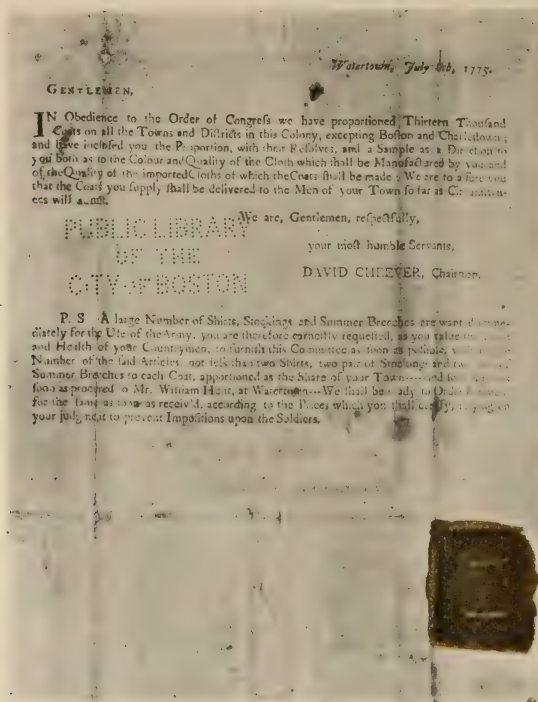 Watertown, July 1775.
GENTLEMEN,
IN Obedience to the Order of Congreſs we have proportioned Thirteen Thouſand
Coats on all the Towns and Diſtricts in this Colony, excepting Boſton and Charleſtown;
and have incloſed you the Proportion, with their Reſolves, and a Sample as a Direction to
you both as to the Colour and Quality of the Cloth which ſhall be Manufactured by you and
of the Quality of the imported Cloths of which the Coats ſhall be made; We are to aſſure you
that the Coats you ſupply ſhall be delivered to the Men of your Town ſo far as Circumſtan-
ces will admit.
We are, Gentlemen, reſpectfully,
your moſt humble Servants,
DAVID CHEEVER, Chairman.
PUBLIC LIBRARY
OF THE
CITY OF BOSTON
P. S. A large Number of Shirts, Stockings and Summer Breeches are wanted imme-
diately for the Uſe of the Army, you are therefore earneſtly requeſted, as you value the
and Health of your Countrymen, to furniſh this Committee as ſoon as poſſible, with
Number of the ſaid Articles, not leſs than two Shirts, two pair of Stockings and two
Summer Breeches to each Coat, apportioned as the Share of your Town----and
ſoon as procured to Mr. William Hunt, at Watertown---We ſhall be ready to Order
for the ſame as ſoon as receiv'd, according to the Prices which you ſhall certify, relying on
your judgment to prevent Impoſitions upon the Soldiers.